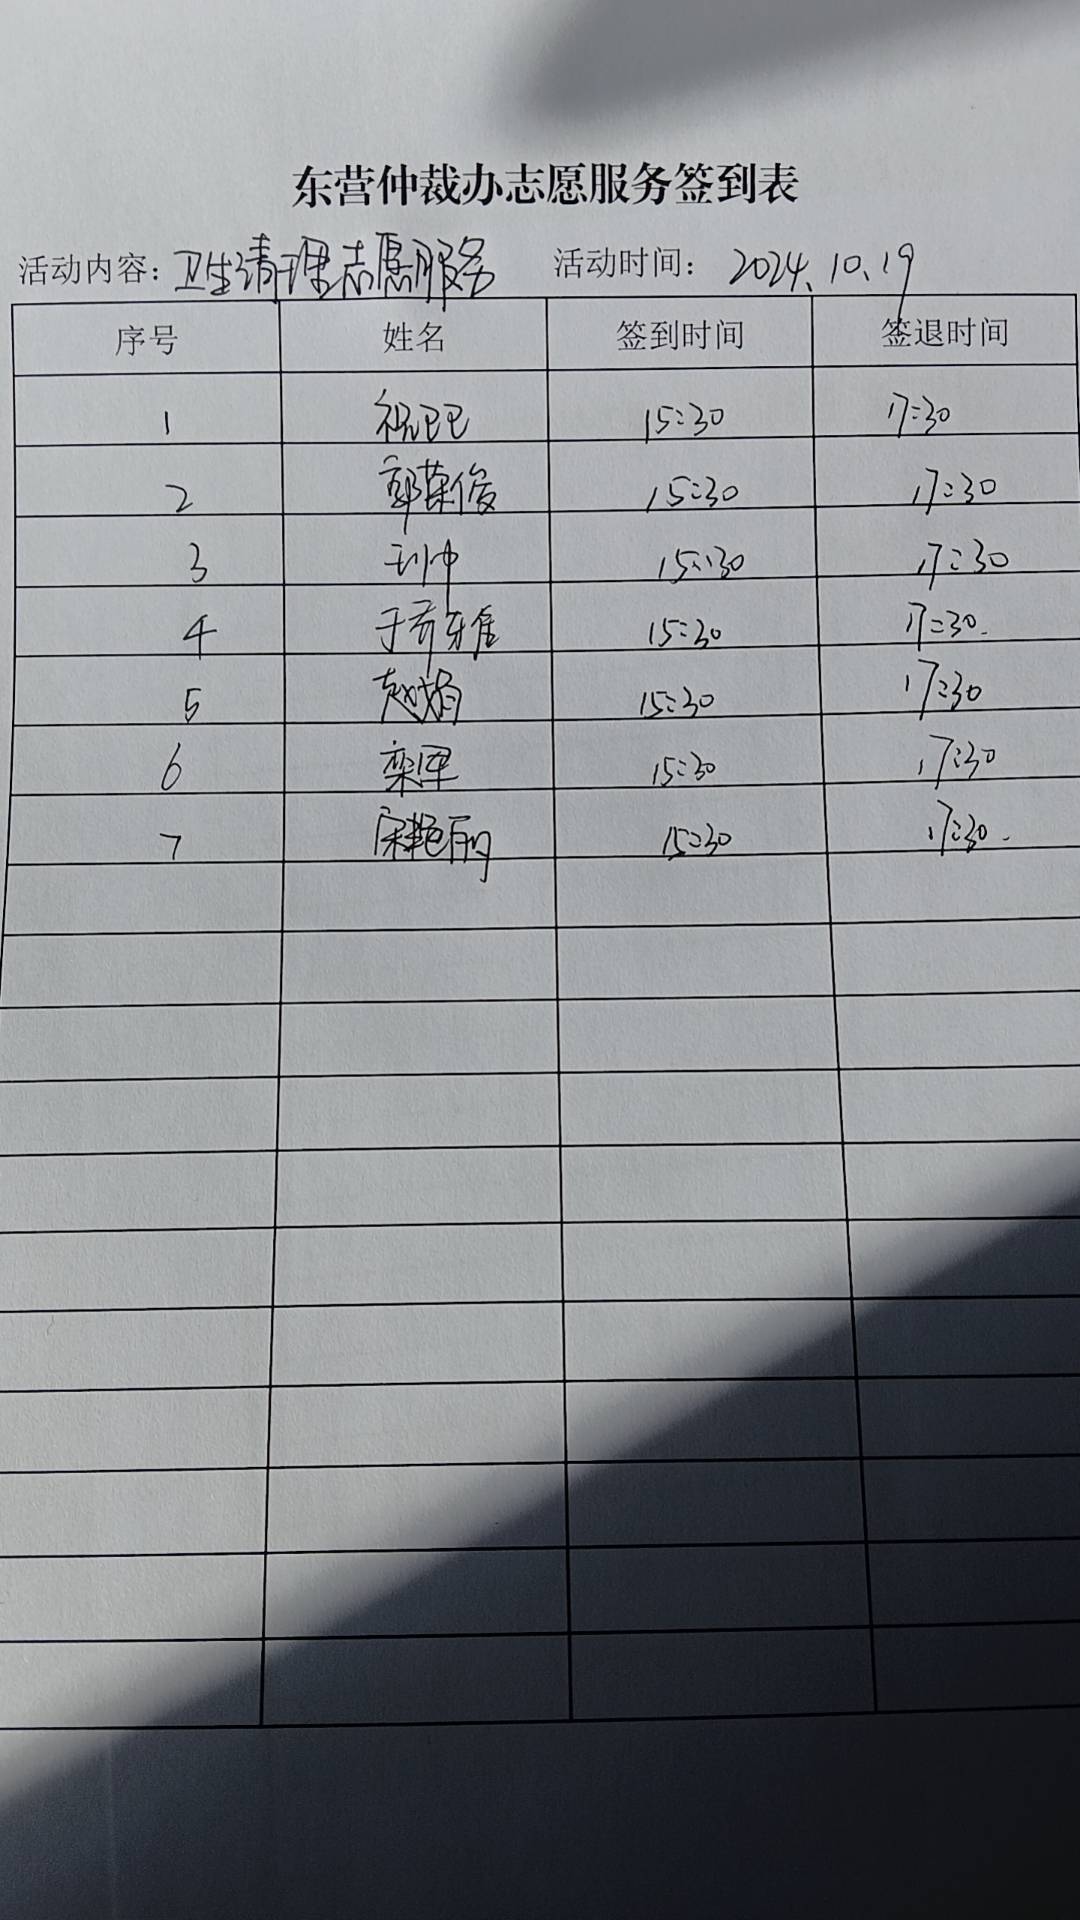 东营仲裁办志愿服务签到表
活动内容：卫生清理志愿服务 活动时间： 2024.10.19
序号 姓名 签到时间 签退时间
1 祝巴巴 15:30 17:30
2 郭荣俊 15:30 17:30
3 15:30 17:30
4 于乔雅 15:30 17:30.
5 赵娟 15:30 17:30
6 栾军 15:30 17:30
7 宋艳丽 15:30 17:30.